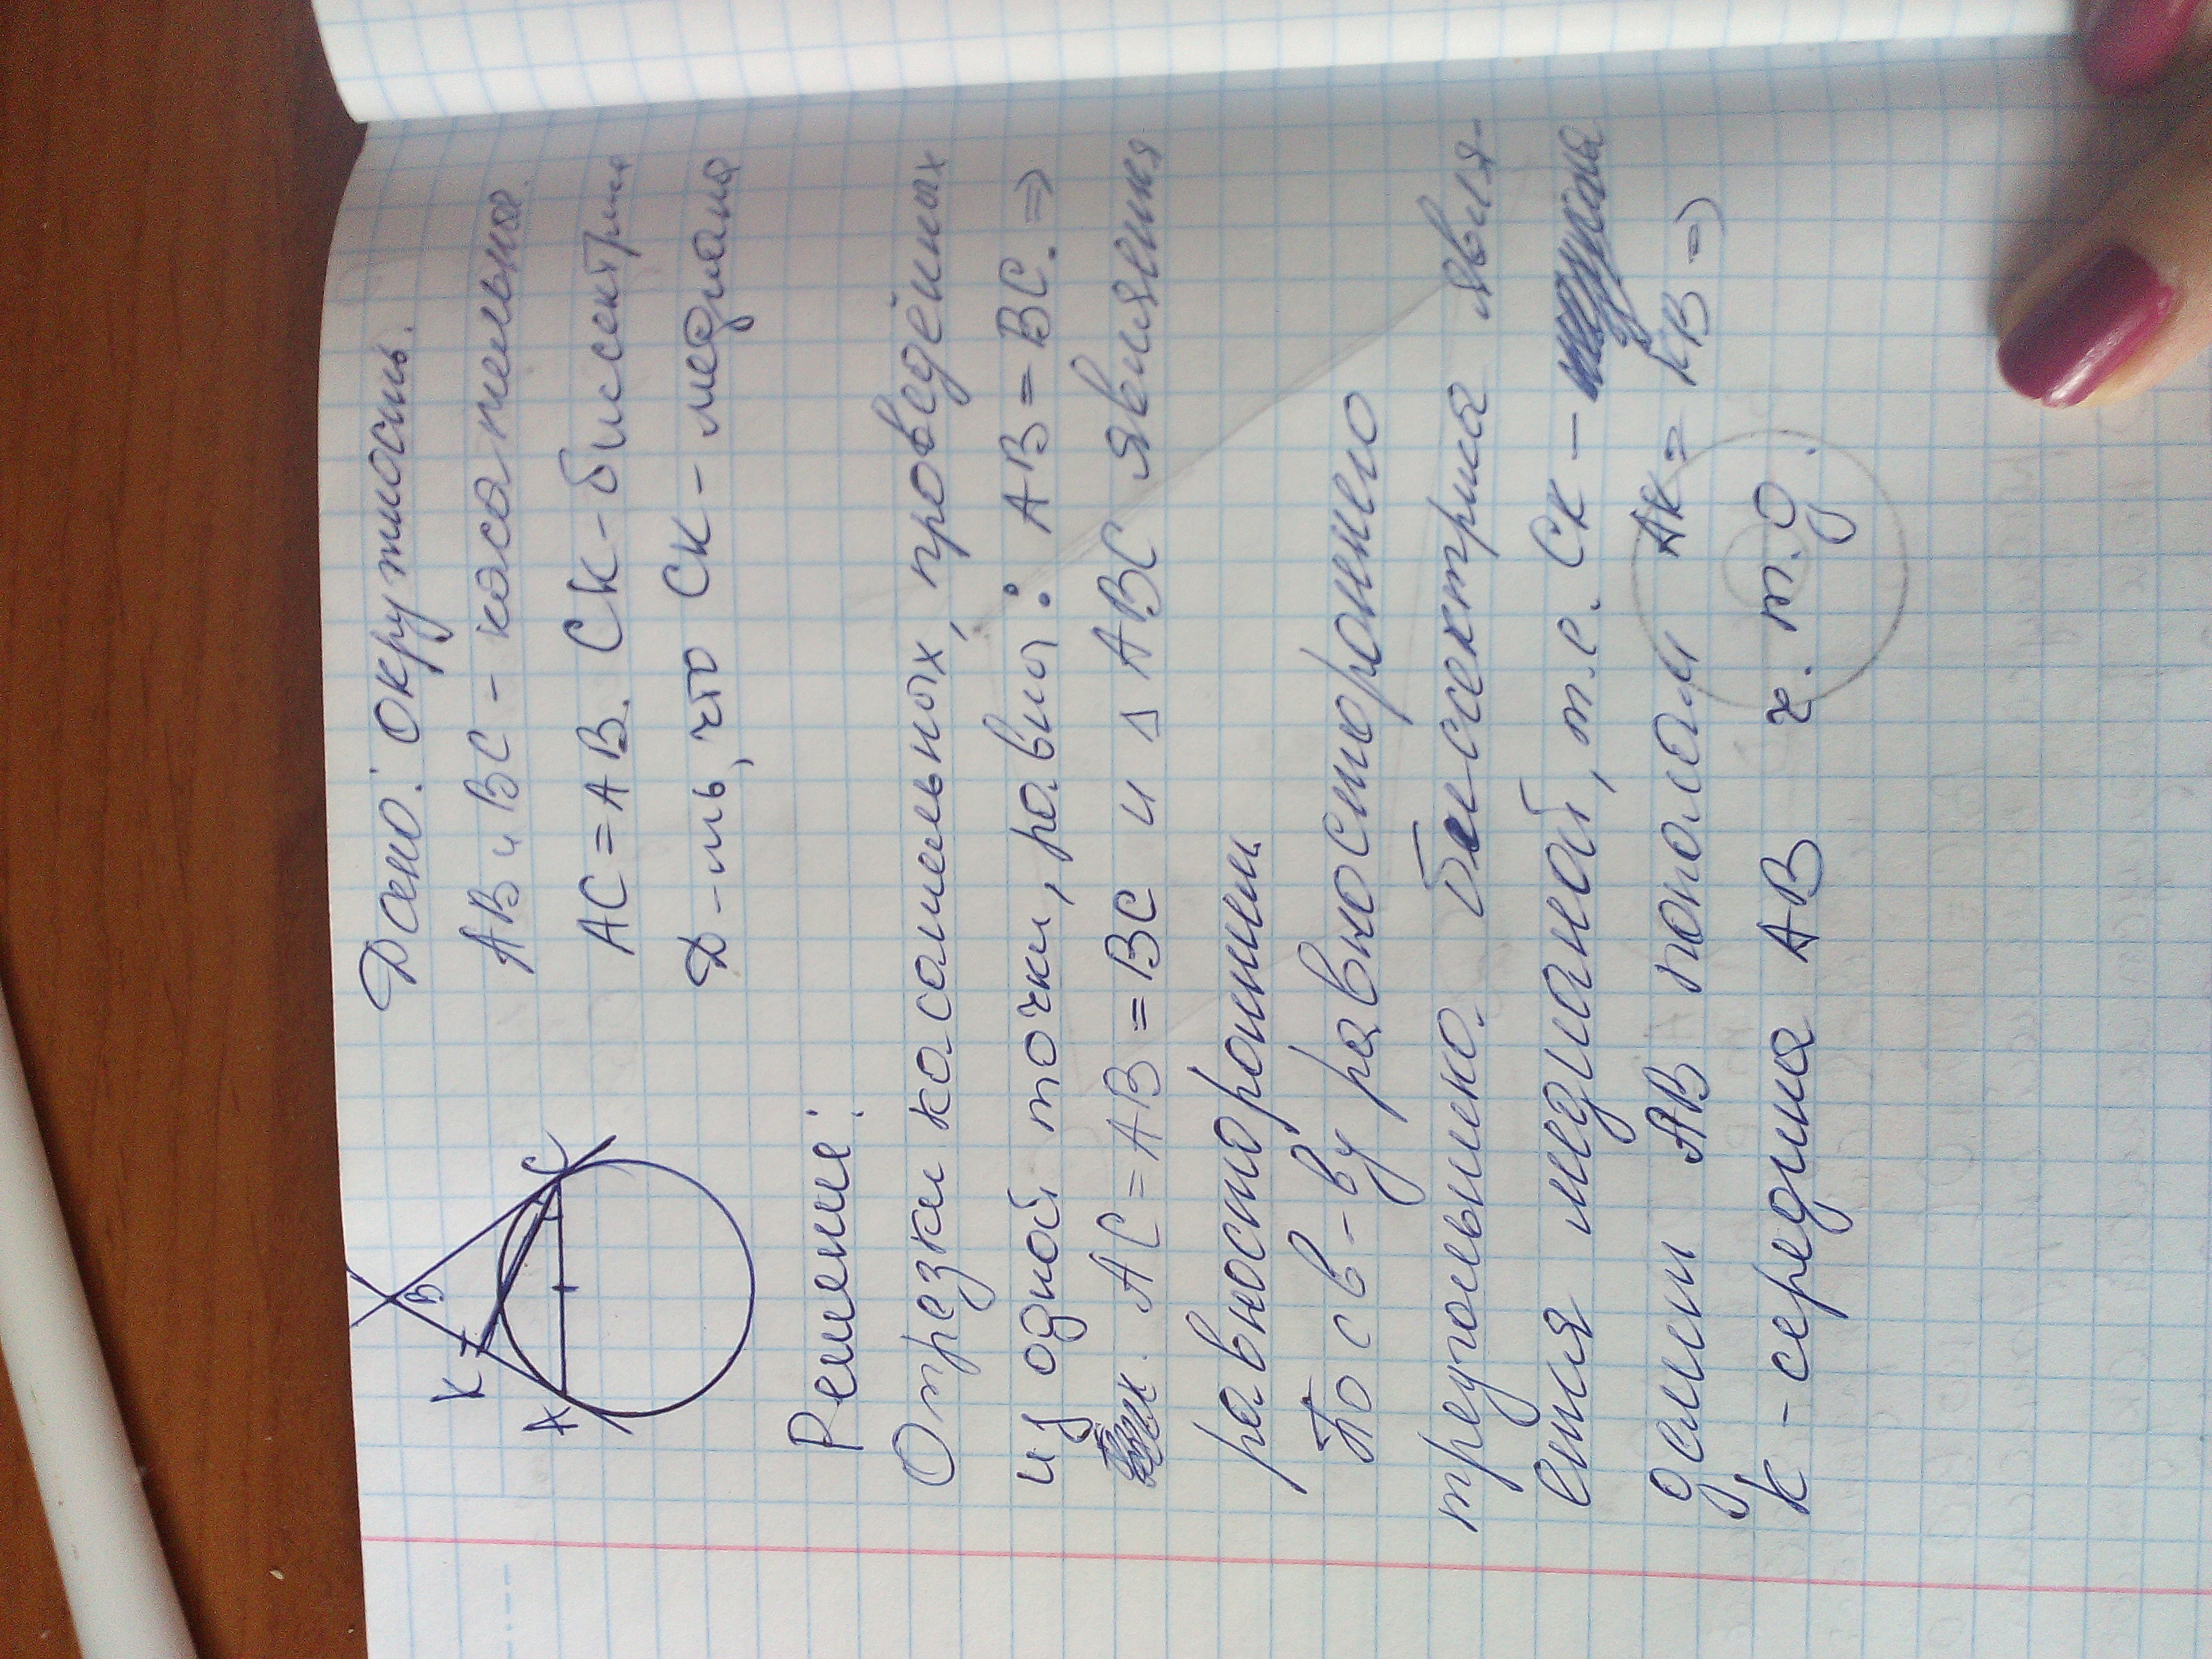 Дано: окружность.
AB и BC - касательные.
AC = AB. CK - биссектриса
Д-ть, что CK - медиана
K
B
A
C
Решение:
Отрезки касательных, проведённых
из одной точки, равны: AB = BC. ⇒
AC = AB = BC и △ ABC является
равносторонним
По св-ву равностороннего
треугольника. Биссектриса явля-
ется медианой, т.е. CK -
делит AB пополам AK = KB ⇒
K - середина AB ч. т.д.